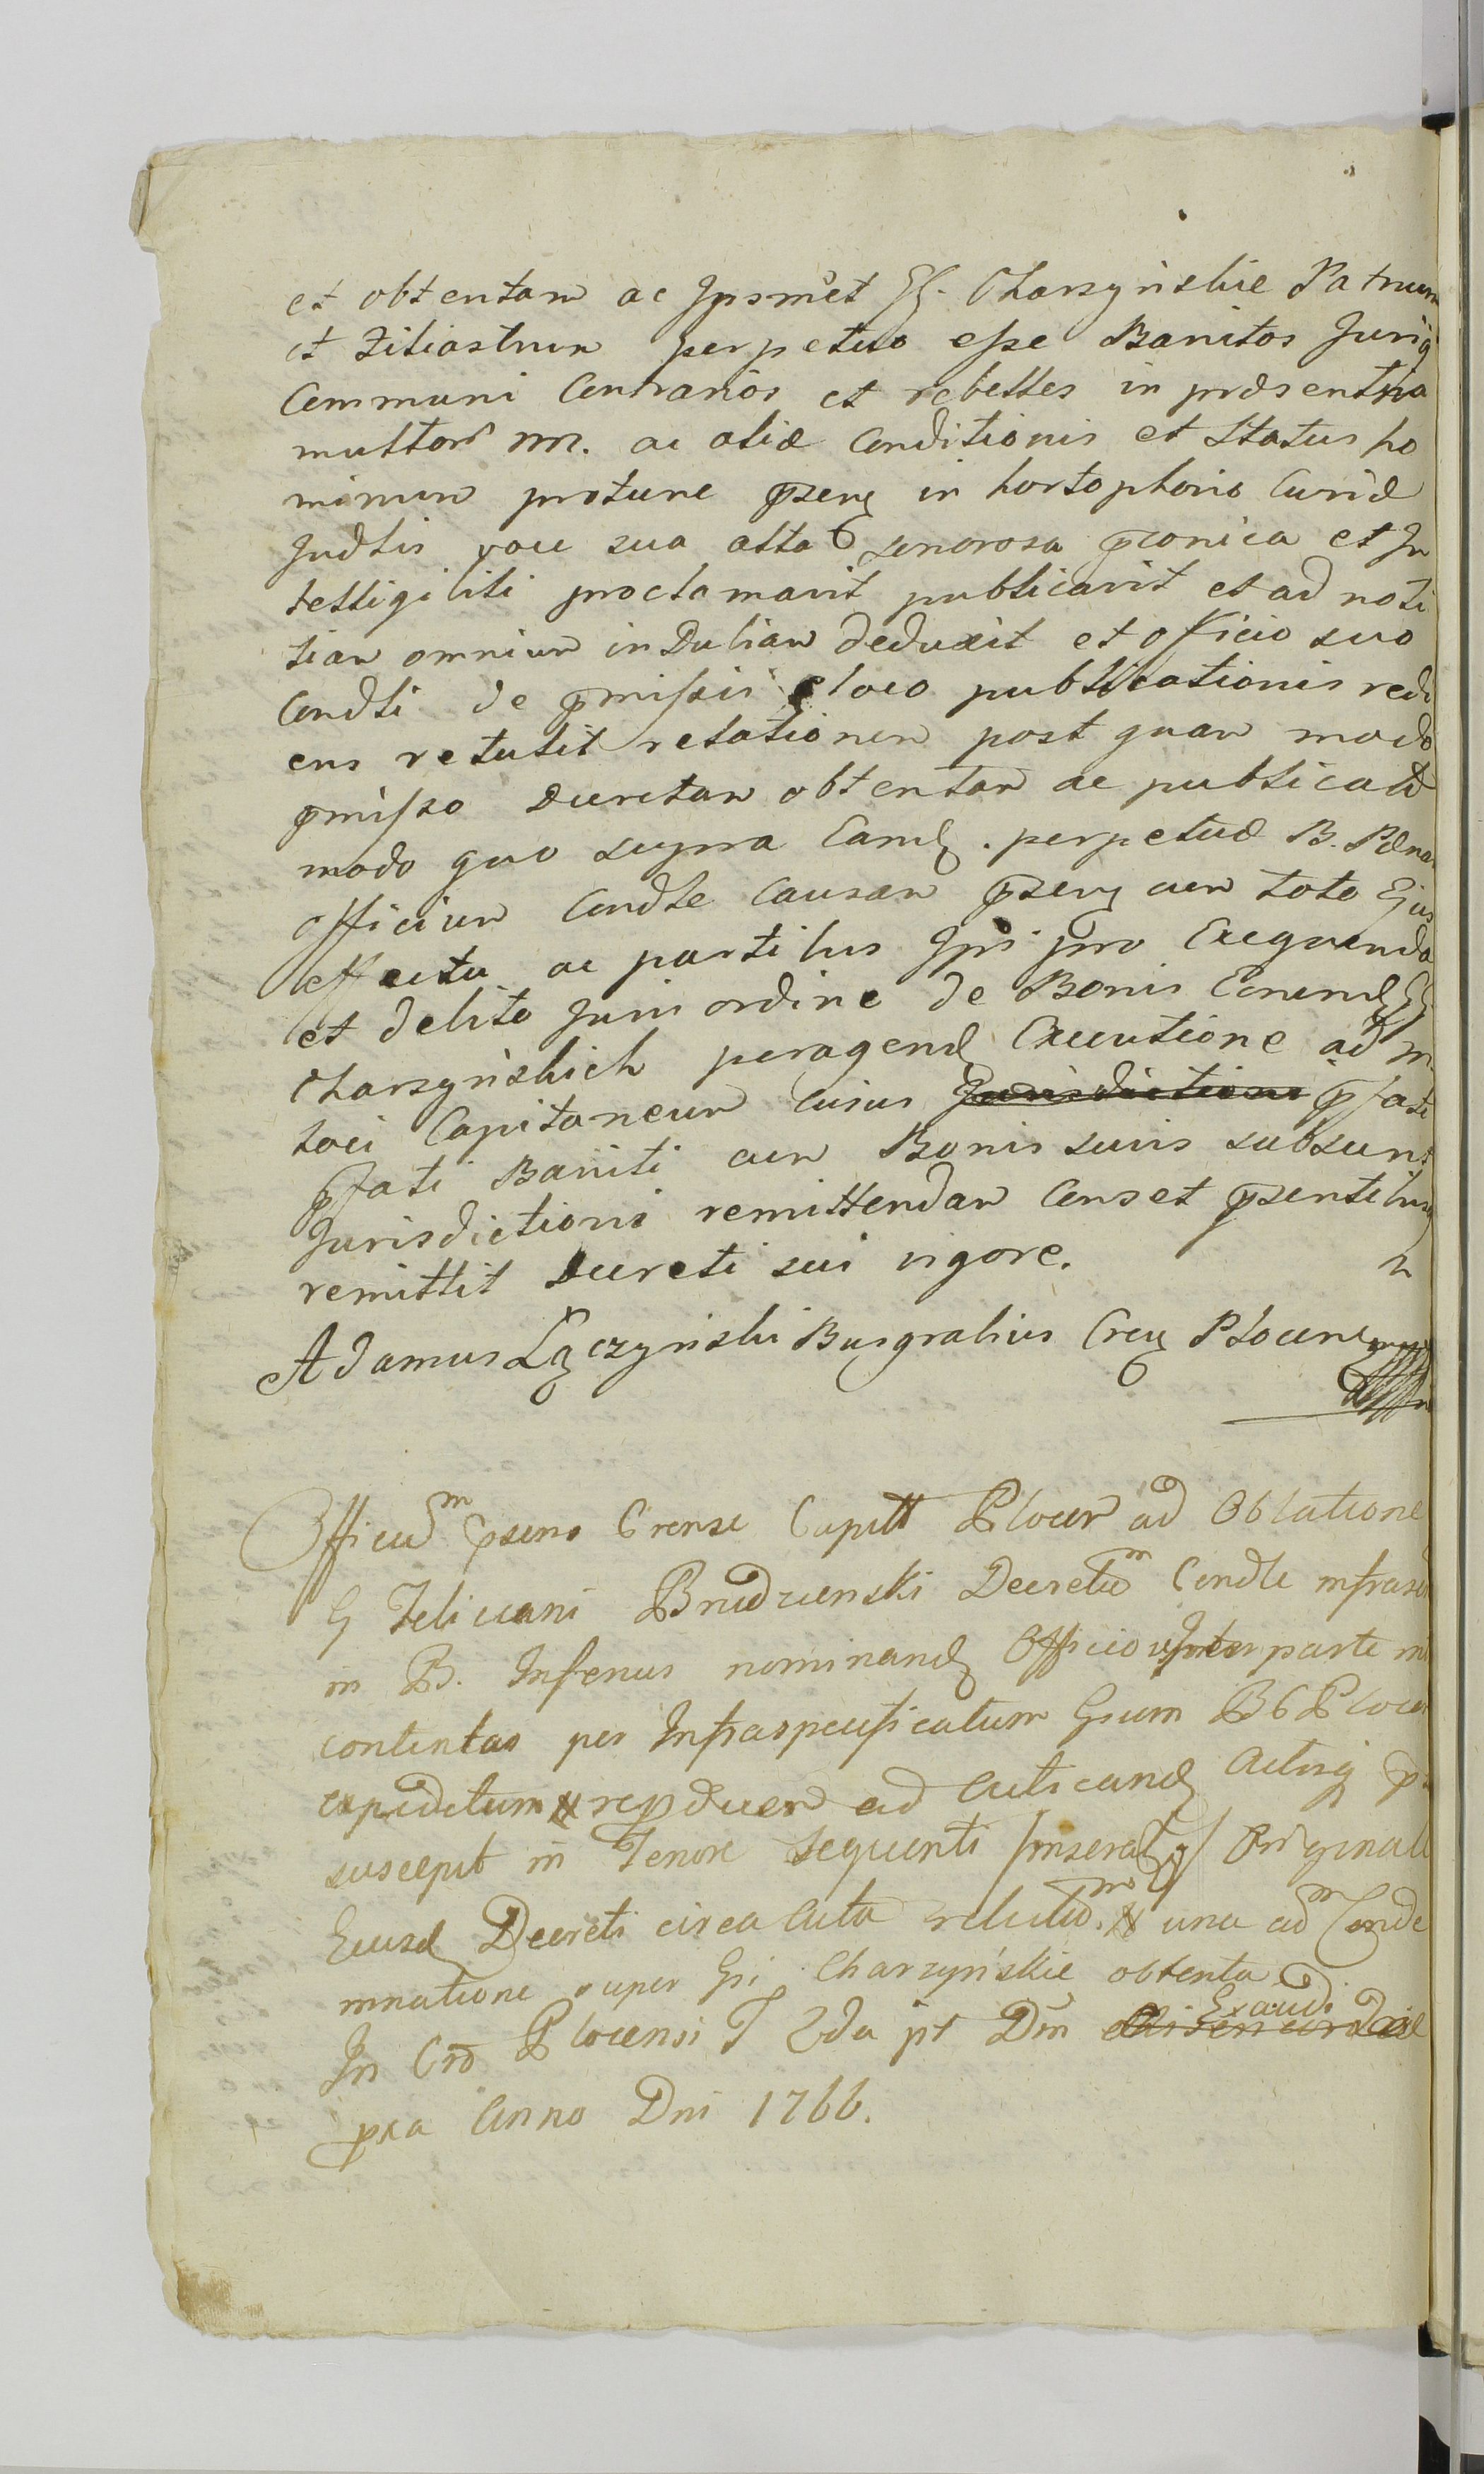 et obtentam ac Ipsmet GG. Charzyńskie Patruum
et Filiastrum perpetuo esse Banitos Juriq
Communi Contrarios et rebelles in præsentia
multor nn. ac aliæ Conditionis et Status ho
minum protunc pseng in hortophorio Curiæ
Judlis voce sua alta sonorosa pconica et In
telligibili proclamavit publicavit et ad noti
tiam omnium in Dubiam deduxit et officio suo
Condti de pmissis e loco publicationis redi
ens retulit relationem post quam modo
pmisso Decretam obtentam ac publicatā
modo quo supra Eamd. perpetuæ B. Pœnam
officium Condte Causam pseng cum toto Ejus
effectu ac partibus Ipsi pro Exequenda
et debito Juris ordine de Bonis Eorund GG
Charzyńskich peragend Executione ad M.
loci Capitaneum Cuius Jurisdictioni pfati
pfati Baniti cum Bonis suis subsunt
Jurisdictioni remittendam Censet psentibusq
remittit Decreti sui vigore.
Adamus Łączyński Burgrabius Creng Plocens
Officiū psens Crense Capitt Plocen ad Oblatione
G Feliciani Brudzienski Decretū Condte infrascr
in B. Inferius nominand Officio Inter parte in
contentas per Infraspecificatum Gsum BGPlocen
expeditum repducen ad Acticand Actisq ps
suscepit in Tenore sequenti /inserat/ Originali
Eiusd Decreti circa Acta relictū. una ad Conde
mnatione super Gsi Charzyńskie obtenta
In Crō Plocensi F 2da pt Dm Exaudi
pxa Anno Dni 1766.